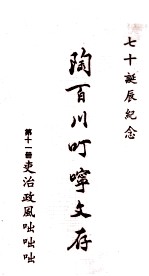 七十誕辰紀念
陶百川叮嚀文存
第十一冊 吏治政風咄咄咄